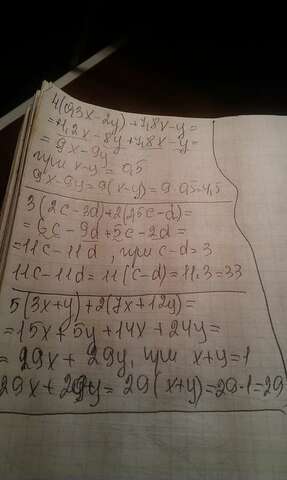 4(0,3x-2y)+7,8x-y=
=1,2x-8y+7,8x-y=
=9x-9y
при x-y=0,5
9x-9y=9(x-y)=9·0,5=4,5
3(2c-3d)+2(2,5c-d)=
=6c-9d+5c-2d=
=11c-11d, при c-d=3
11c-11d=11(c-d)=11·3=33
5(3x+y)+2(7x+12y)=
=15x+5y+14x+24y=
=29x+29y, при x+y=1
29x+29y=29(x+y)=29·1=29